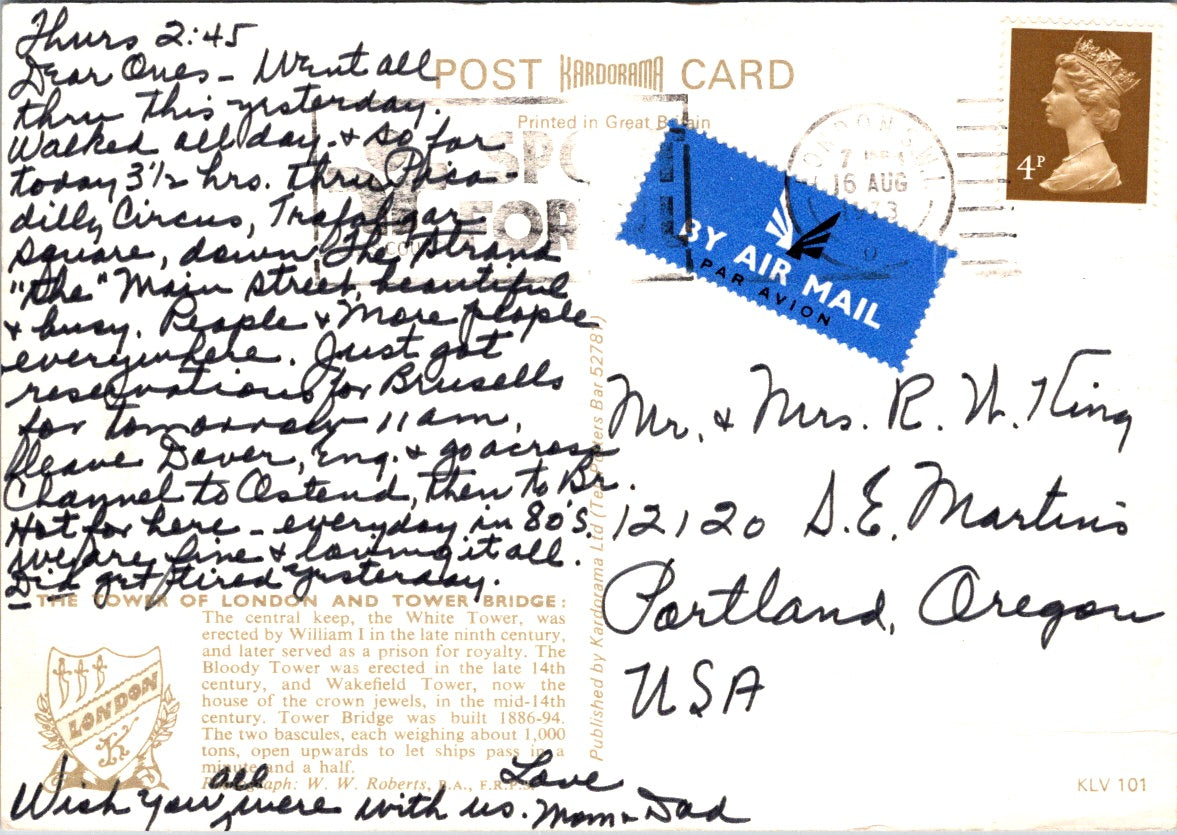 Thurs 2:45
Dear Ones - Went all
thru this yesterday.
Walked all day. & so far
today 3 1/2 hrs. thru Pica-
dilly Circus, Trafalgar
Square, down The Strand
"the" Main Street, beautiful
& busy. People & More people
everywhere. Just got
reservations for Brusells
for tomorrow 11 am,
leave Dover, Eng. & go across
Channel to Ostend, then to Br.
Hot for here - everyday in 80's.
We are fine & loving it all.
Did get tired yesterday.
THE TOWER OF LONDON AND TOWER BRIDGE:
The central keep, the White Tower, was
erected by William I in the late ninth century,
and later served as a prison for royalty. The
Bloody Tower was erected in the late 14th
century, and Wakefield Tower, now the
house of the crown jewels, in the mid-14th
century. Tower Bridge was built 1886-94.
The two bascules, each weighing about 1,000
tons, open upwards to let ships pass in a
minute and a half.
Photograph: W. W. Roberts, B.A., F.R.P.S.
LONDON
K
Wish you all were with us. Love
Mom & Dad
POST KARDORAMA CARD
Printed in Great Britain
Published by Kardorama Ltd (Tel: Potters Bar 52781)
FOR
LONDON SW1
16 AUG
1973
4P
BY AIR MAIL
PAR AVION
Mr. & Mrs. R. W. King
12120 S.E. Martins
Portland, Oregon
USA
KLV 101